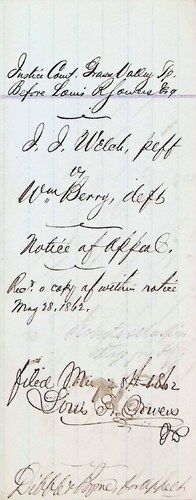 Justice Court Grass Valley Tp.
Before Louis R Sowers Esq
J. J. Welch, peff
vs
Wm Berry, deft
Notice of Appeal.
Recd. a copy of within notice
May 28, 1862.
filed May 28th 1862
Louis R Sowers
JP
Dibble & Byrne for appelt